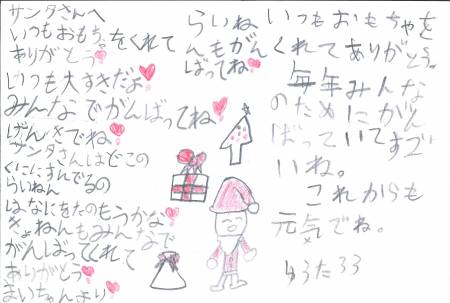 サンタさんへ
いつもおもちゃをくれて
ありがとう
いつも大すきだよ
みんなでがんばってね
げんきでね。
サンタさんはどこの
くににすんでるの
らいねん
はなにをたのもうかな
きょねんもみんなで
がんばってくれて
ありがとう
まいちゃんより
らいね
んもがん
ばってね
いつもおもちゃを
くれてありがとう。
毎年みんな
のためにがん
ばっていてすご
いね。
これからも
元気でね。